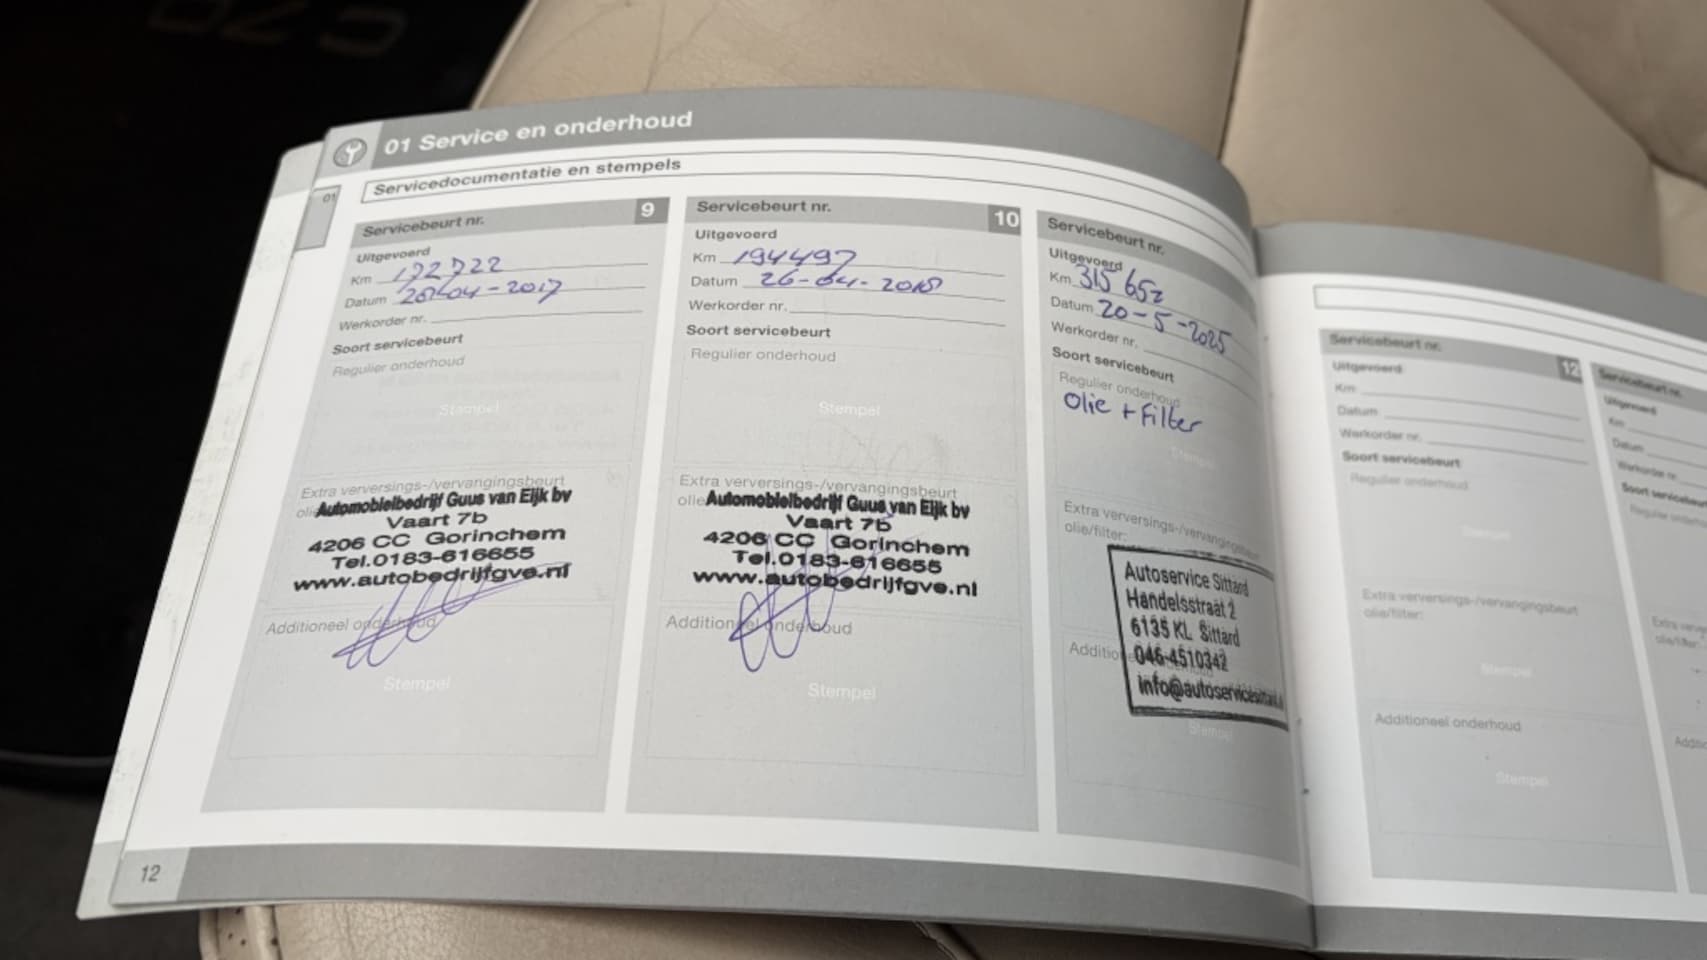 C70
01 Service en onderhoud
01
Servicedocumentatie en stempels
Servicebeurt nr. 9
Uitgevoerd
Km 172722
Datum 20-04-2017
Werkorder nr.
Soort servicebeurt
Regulier onderhoud
Stempel
Extra verversings-/vervangingsbeurt
Automobielbedrijf Guus van Eijk bv
Vaart 7b
4206 CC Gorinchem
Tel.0183-616655
www.autobedrijfgve.nl
Additioneel onderhoud
Stempel
Servicebeurt nr. 10
Uitgevoerd
Km 194497
Datum 26-04-2018
Werkorder nr.
Soort servicebeurt
Regulier onderhoud
Stempel
Extra verversings-/vervangingsbeurt
Automobielbedrijf Guus van Eijk bv
Vaart 7b
4206 CC Gorinchem
Tel.0183-616655
www.autobedrijfgve.nl
Additioneel onderhoud
Stempel
Servicebeurt nr.
Uitgevoerd
Km 315 652
Datum 20-5-2025
Werkorder nr.
Soort servicebeurt
Regulier onderhoud
Olie + Filter
Stempel
Extra verversings-/vervangingsbeurt
olie/filter:
Autoservice Sittard
Handelsstraat 2
6135 KL Sittard
046-4510342
info@autoservicesittard.
Stempel
12
Servicebeurt nr. 12
Uitgevoerd
Km
Datum
Werkorder nr.
Soort servicebeurt
Regulier onderhoud
Stempel
Extra verversings-/vervangingsbeurt
olie/filter:
Stempel
Additioneel onderhoud
Stempel
Servicebeurt nr.
Uitgevoerd
Km
Datum
Werkorder nr.
Regulier
olie/filter: